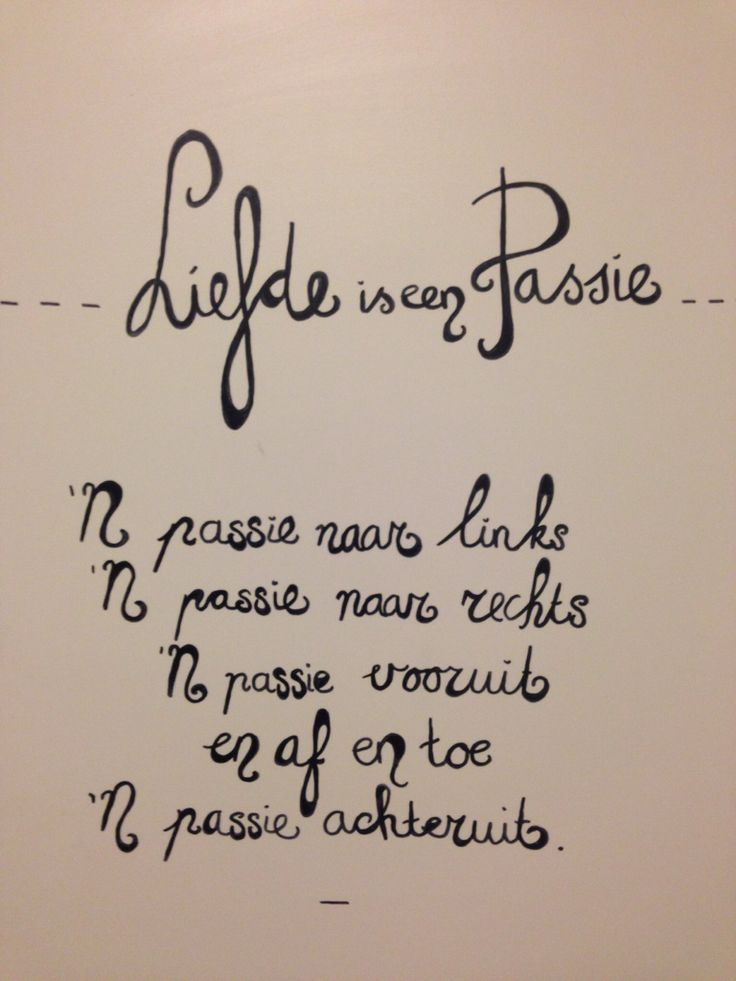 Liefde is een Passie
'N passie naar links
'N passie naar rechts
'N passie vooruit
en af en toe
'N passie achteruit.